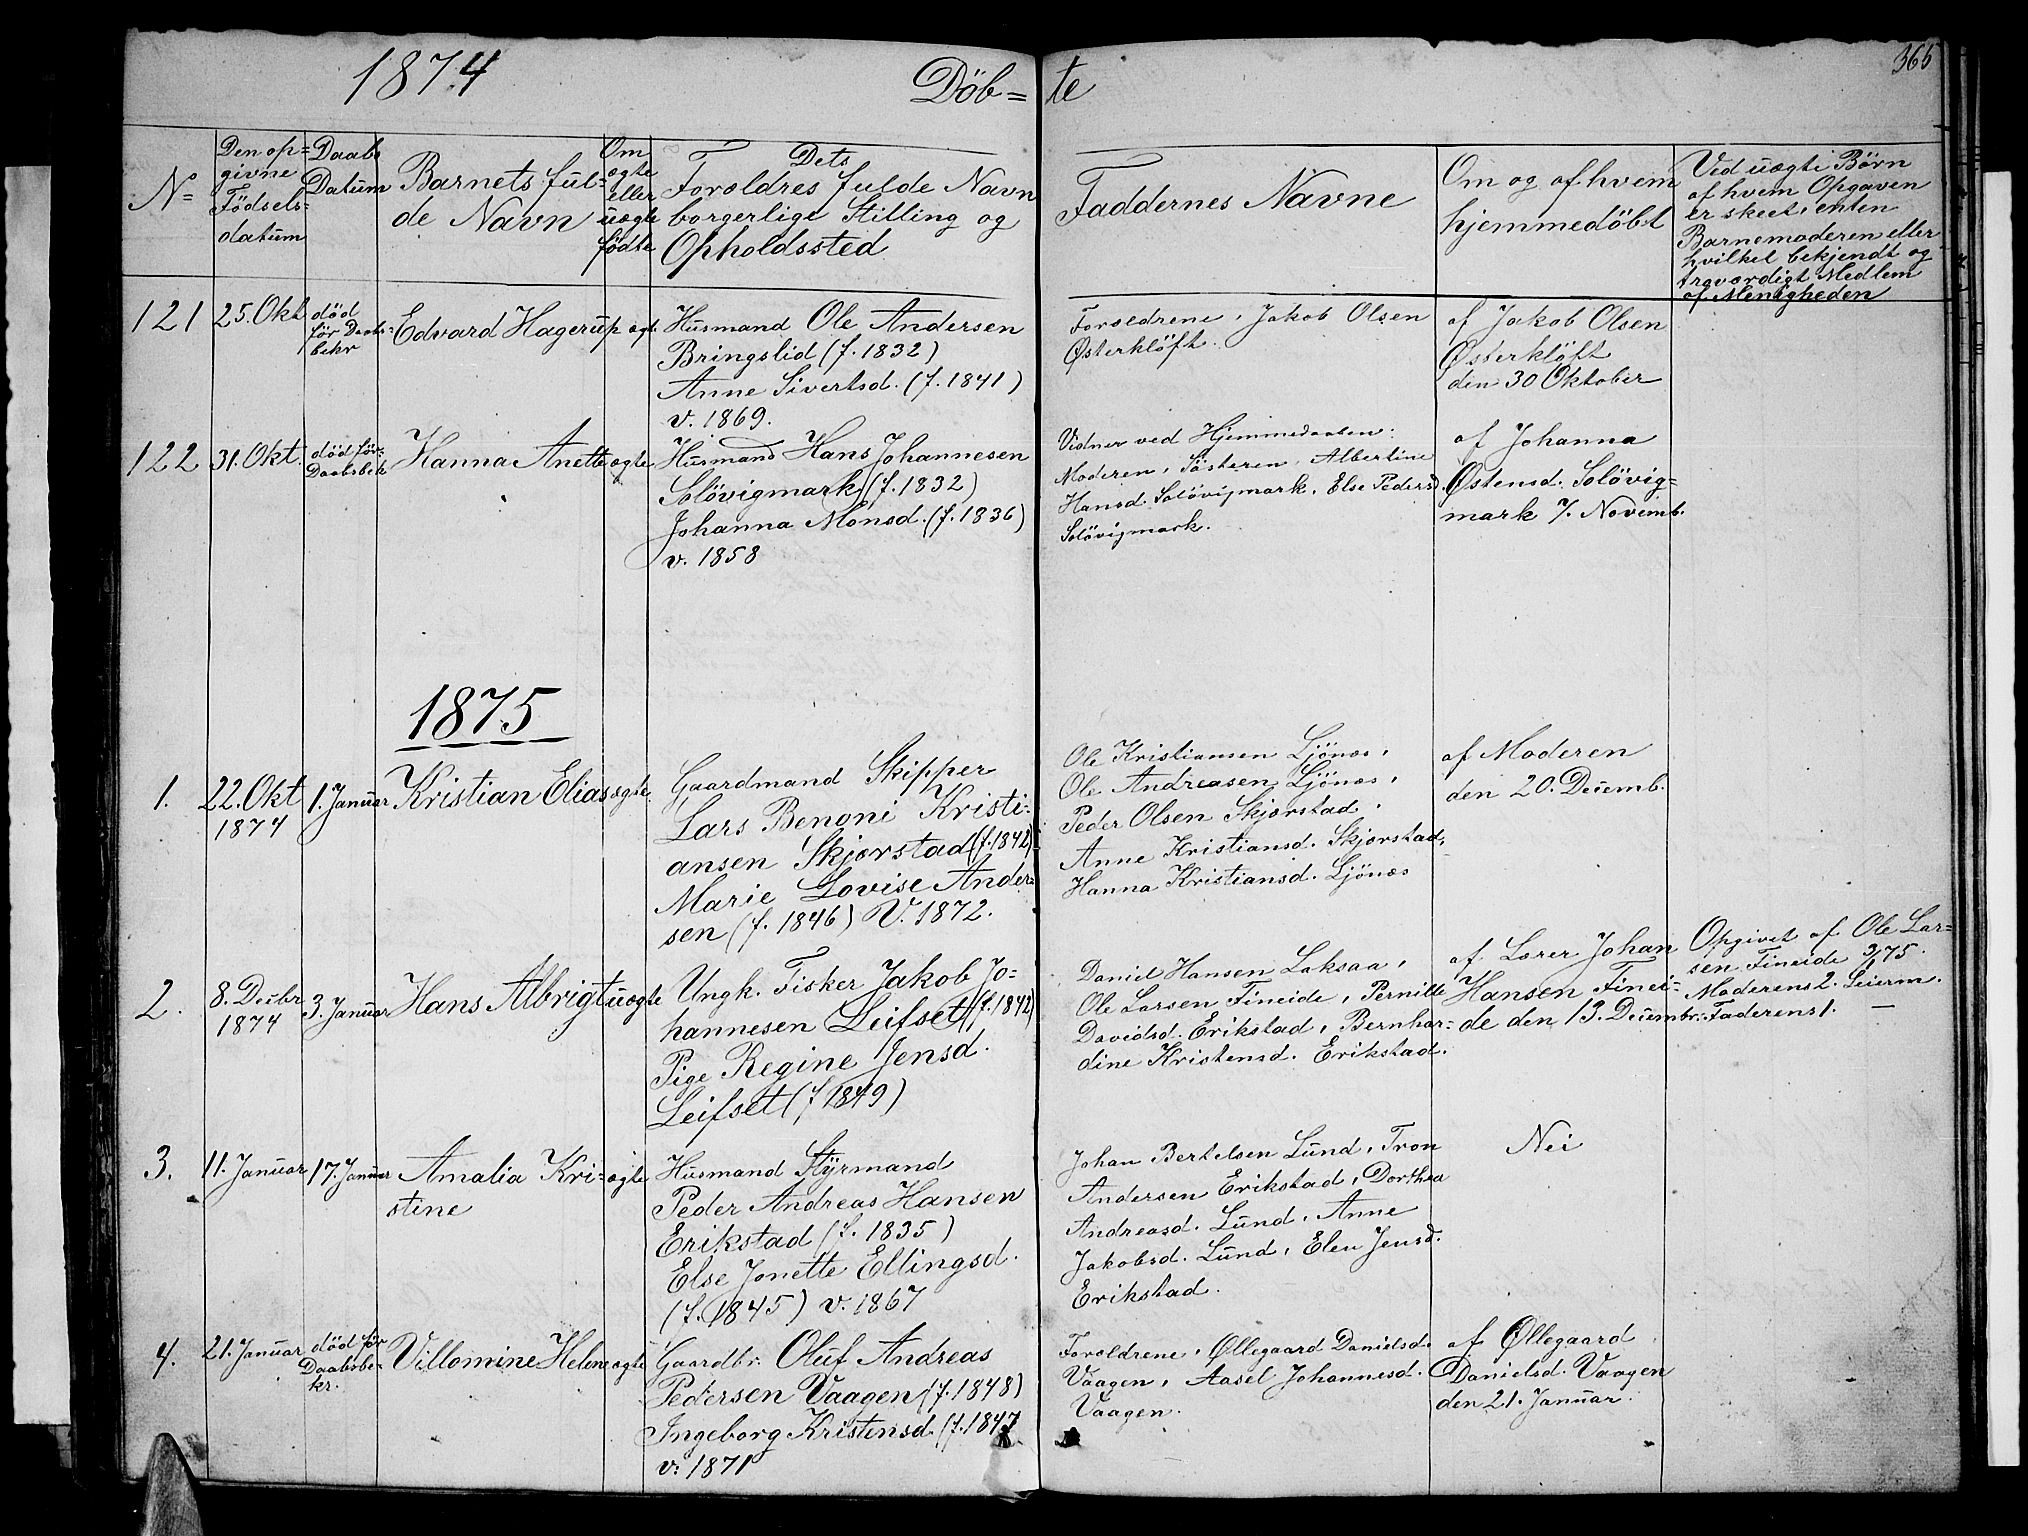 1874
Döb=
te
365
N=
Den op=
givne
Födsels-
datum
Daabs
Datum
Barnets ful-
de Navn
Om
ægte
eller
uægte
fødte
Dets
Forældres fulde Navn
borgerlige Stilling og
Opholdssted
Faddernes Navne
Om og af hvem
hjemmedöbt
Ved uægte Børn
af hvem Opgaven
er skeet, enten
Barnemoderen eller
hvilket bekjendt og
troværdigt Medlem
af Menigheden
121
25. Okt
död
för Daabs-
bekr
Edvard Hagerup
ægte
Husmand Ole Andersen
Bringslid (f. 1832)
Anne Sivertsd. (f. 1841)
v. 1869.
Forældrene, Jakob Olsen
Østerklöft.
af Jakob Olsen
Østerklöft
den 30 Oktober
122
31. Okt.
död för
Daabsbek
Hanna Anette
ægte
Husmand Hans Johannesen
Solövigmark (f. 1832)
Johanna Monsd. (f. 1836)
v. 1858
Vidner ved Hjemmedaaben:
Moderen, Sösteren, Albertine
Hansd. Solövigmark, Else Pedersd.
Solövigmark.
af Johanna
Østensd. Solövig=
mark 7. Novemb.
1875
1.
22. Okt
1874
1. Januar
Kristian Elias
ægte.
Gaardmand Skipper
Lars Benoni Kristi-
ansen Skjærstad (f. 1842)
Marie Lovise Ander-
sen (f. 1846) V. 1872.
Ole Kristiansen Ljönæs,
Ole Andreasen Ljönæs,
Peder Olsen Skjærstad,
Anne Kristiansd. Skjærstad,
Hanna Kristiansd. Ljönæs
af Moderen
den 20. Decemb.
2.
8. Decbr
1874
3. Januar
Hans Albrigt
uægte
Ungk. Fisker Jakob Jo=
hannesen Leifset (f. 1842)
Pige Regine Jensd.
Leifset (f 1849)
Daniel Hansen Laksaa,
Ole Larsen Fineide, Pernille
Davidsd. Erikstad, Bernhar=
dine Kristensd. Erikstad.
af Lærer Johan
Hansen Finei-
de den 13. Decembr.
Opgivet af Ole Lar=
sen Fineide 3/1 75.
Moderens 2. Leierm.
Faderens 1. —
3.
11. Januar
17. Januar
Amalia Kri-
stine
ægte
Husmand Styrmand
Peder Andreas Hansen
Erikstad (f. 1835)
Else Jonette Ellingsd.
(f. 1845) v. 1867
Johan Bertelsen Lund, Tron
Andersen Erikstad, Dorthea
Andreasd. Lund, Anne
Jakobsd. Lund, Elen Jensd.
Erikstad.
Nei
4.
21. Januar
död för
Daabsbe-
kr.
Villomine Helene
ægte
Gaardbr. Oluf Andreas
Pedersen Vaagen (f. 1848)
Ingeborg Kristensd. (f. 1847
v. 1871
Forældrene, Øllegaard Danielsd.
Vaagen, Aasel Johannesd.
Vaagen.
af Øllegaard
Danielsd. Vaagen
den 21. Januar.